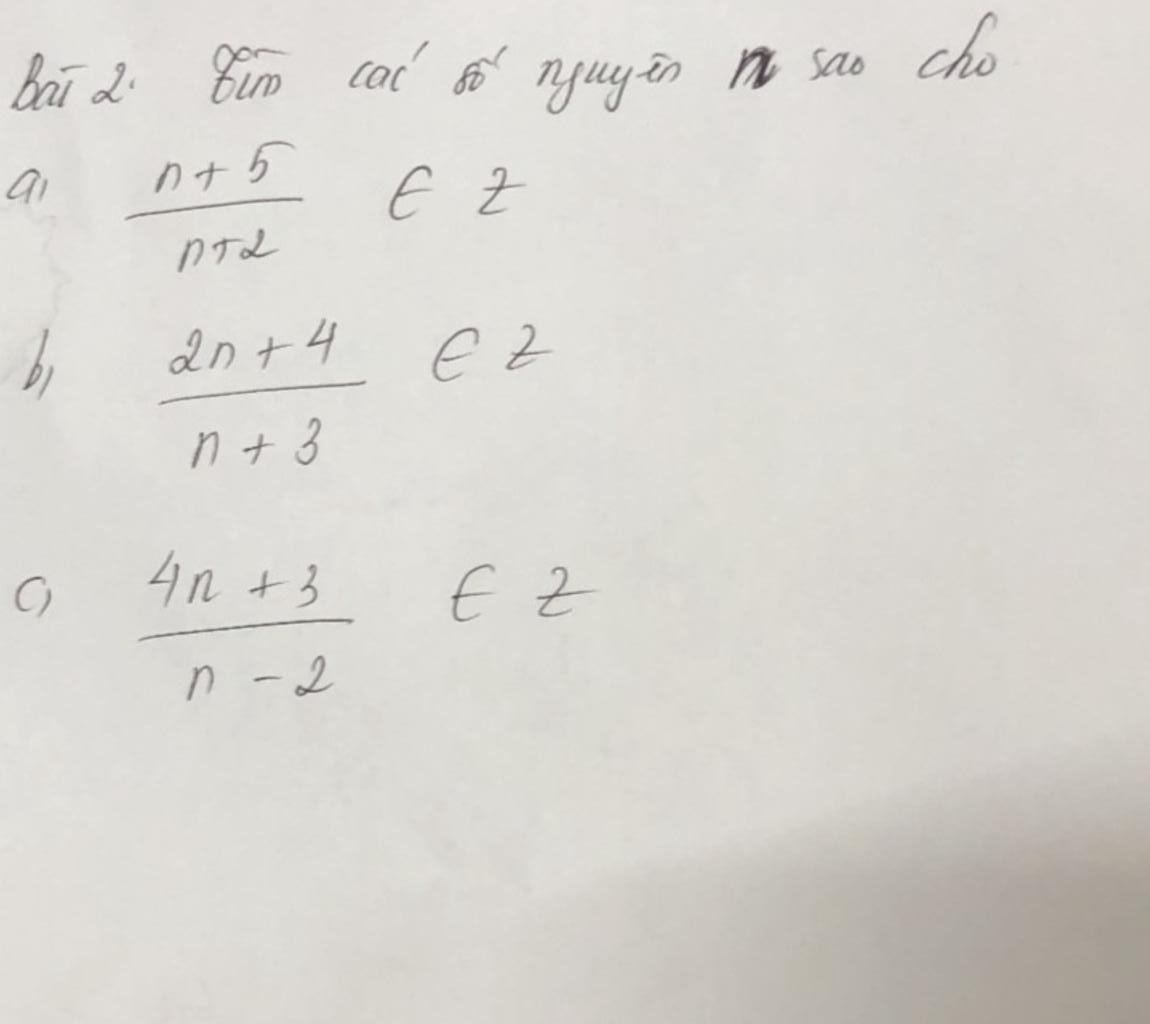 Bài 2. Tìm các số nguyên n sao cho
a, \frac{n+5}{n+2} ∈ Z
b, \frac{2n+4}{n+3} ∈ Z
c, \frac{4n+3}{n-2} ∈ Z